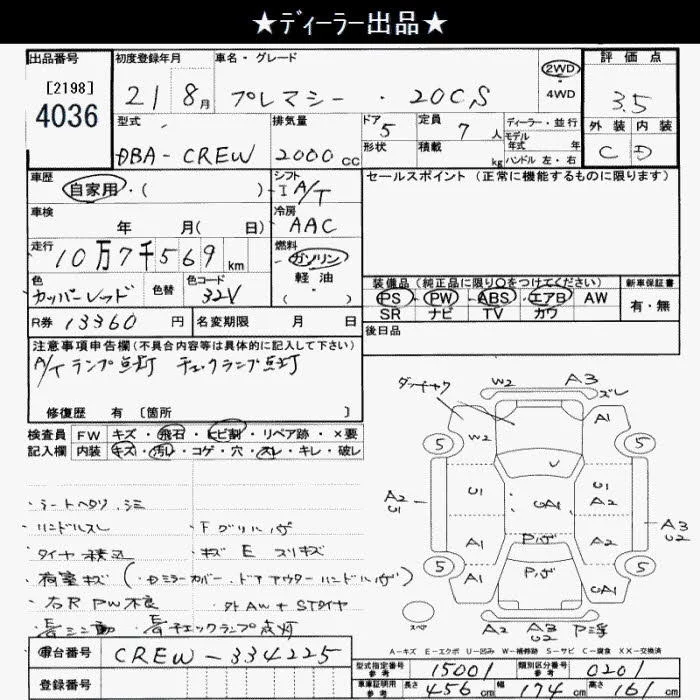 ★ディーラー出品★
出品番号 初度登録年月 車名・グレード 2WD 評価点
[2198] 4036 21 8月 プレマシー ・ 20CS 4WD 3.5
型式 排気量 ドア 5 定員 7人 ディーラー・並行 外装 内装
DBA-CREW 2000cc 形状 積載 kg モデル年式 年 ハンドル 左・右 C D
車歴 自家用・( ) シフト IA/T セールスポイント (正常に機能するものに限ります)
車検 年 月( 日) 冷房 AAC
走行 10万7千569km 燃料 ガソリン
軽油
色 カッパーレッド 色替 色コード 32V ( ・ ) 装備品 (純正品に限り○をつけてください) 新車保証書
PS ・ PW ・ ABS ・ エアB AW 有・無
SR ナビ TV カワ
R券 13360 円 名変期限 月 日 後日品
注意事項申告欄(不具合内容等は具体的に記入して下さい)
A/Tランプ点灯 チェックランプ点灯
修復歴 有 [箇所 ]
検査員 FW キズ・飛石・ヒビ割・リペア跡・×要
記入欄 内装 キズ・汚レ・コゲ・穴・スレ・キレ・破レ
・シートヘタリ.シミ
・ハンドルスレ ・Fグリルハゲ
・タイヤ積込 ・キズ E スリキズ
・荷室キズ(・Dミラーカバー.ドアアウターハンドルハゲ)
・右R PW不良 ・外AW+STタイヤ
W2 A3 ズレ
A1
W2
5 5
U
A2 U1 U1 UA1 U1 A2 A3 U2
A1 Pハゲ A2
5 5
A1 Pハゲ UA1
スペア A2 A3 U2 P浮
A-キズ E-エクボ U-凹み W-補修跡 S-サビ C-腐食 XX-交換済
車台番号 CREW-334225
登録番号
型式指定番号 参考 15001 類別区分番号 参考 0201
車庫証明用 参考 長さ 456cm 幅 174cm 高さ 161cm